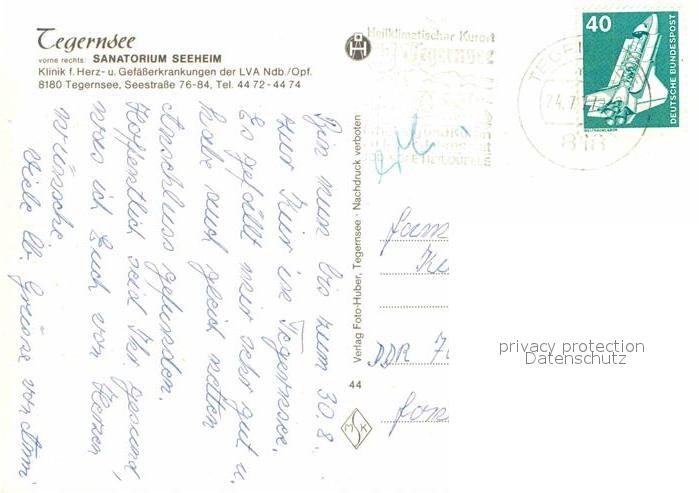 Tegernsee
vorne rechts: SANATORIUM SEEHEIM
Klinik f. Herz- u. Gefäßerkrankungen der LVA Ndb./Opf.
8180 Tegernsee, Seestraße 76-84, Tel. 44 72 - 44 74
Bin nun bis zum 30. 8.
zur Kur in Tegernsee.
Es gefällt mir sehr gut u.
habe auch gleich netten
Anschluss gefunden.
Hoffentlich seid Ihr gesund,
was ich Euch von Herzen
wünsche.
Viele lb. Grüsse von
Verlag Foto-Huber, Tegernsee · Nachdruck verboten
44
MSK
Heilklimatischer Kurort
Tegernsee
TEGE
24.7.
818
40
DEUTSCHE BUNDESPOST
WELTRAUMLABOR
Fam
DDR 7
privacy protection
Datenschutz